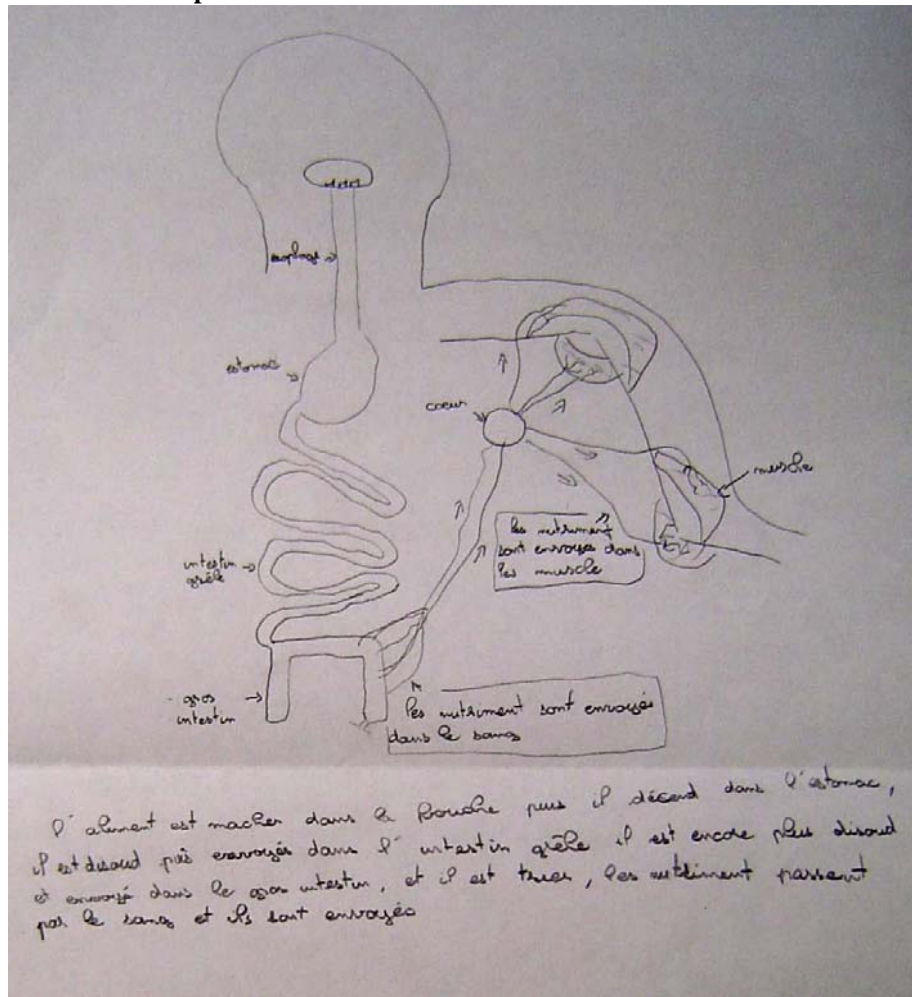 esophage
estomac
coeur
muscle
les nutriment
sont envoyés dans
les muscle
intestin
grêle
gros
intestin
les nutriment sont envoyés
dans le sang
l'aliment est macher dans la bouche puis il décend dans l'estomac,
il est disoud puis envoyés dans l'intestin grêle il est encore plus disoud
et envoyé dans le gros intestin, et il est trier, les nutriment passent
par le sang et ils sont envoyés